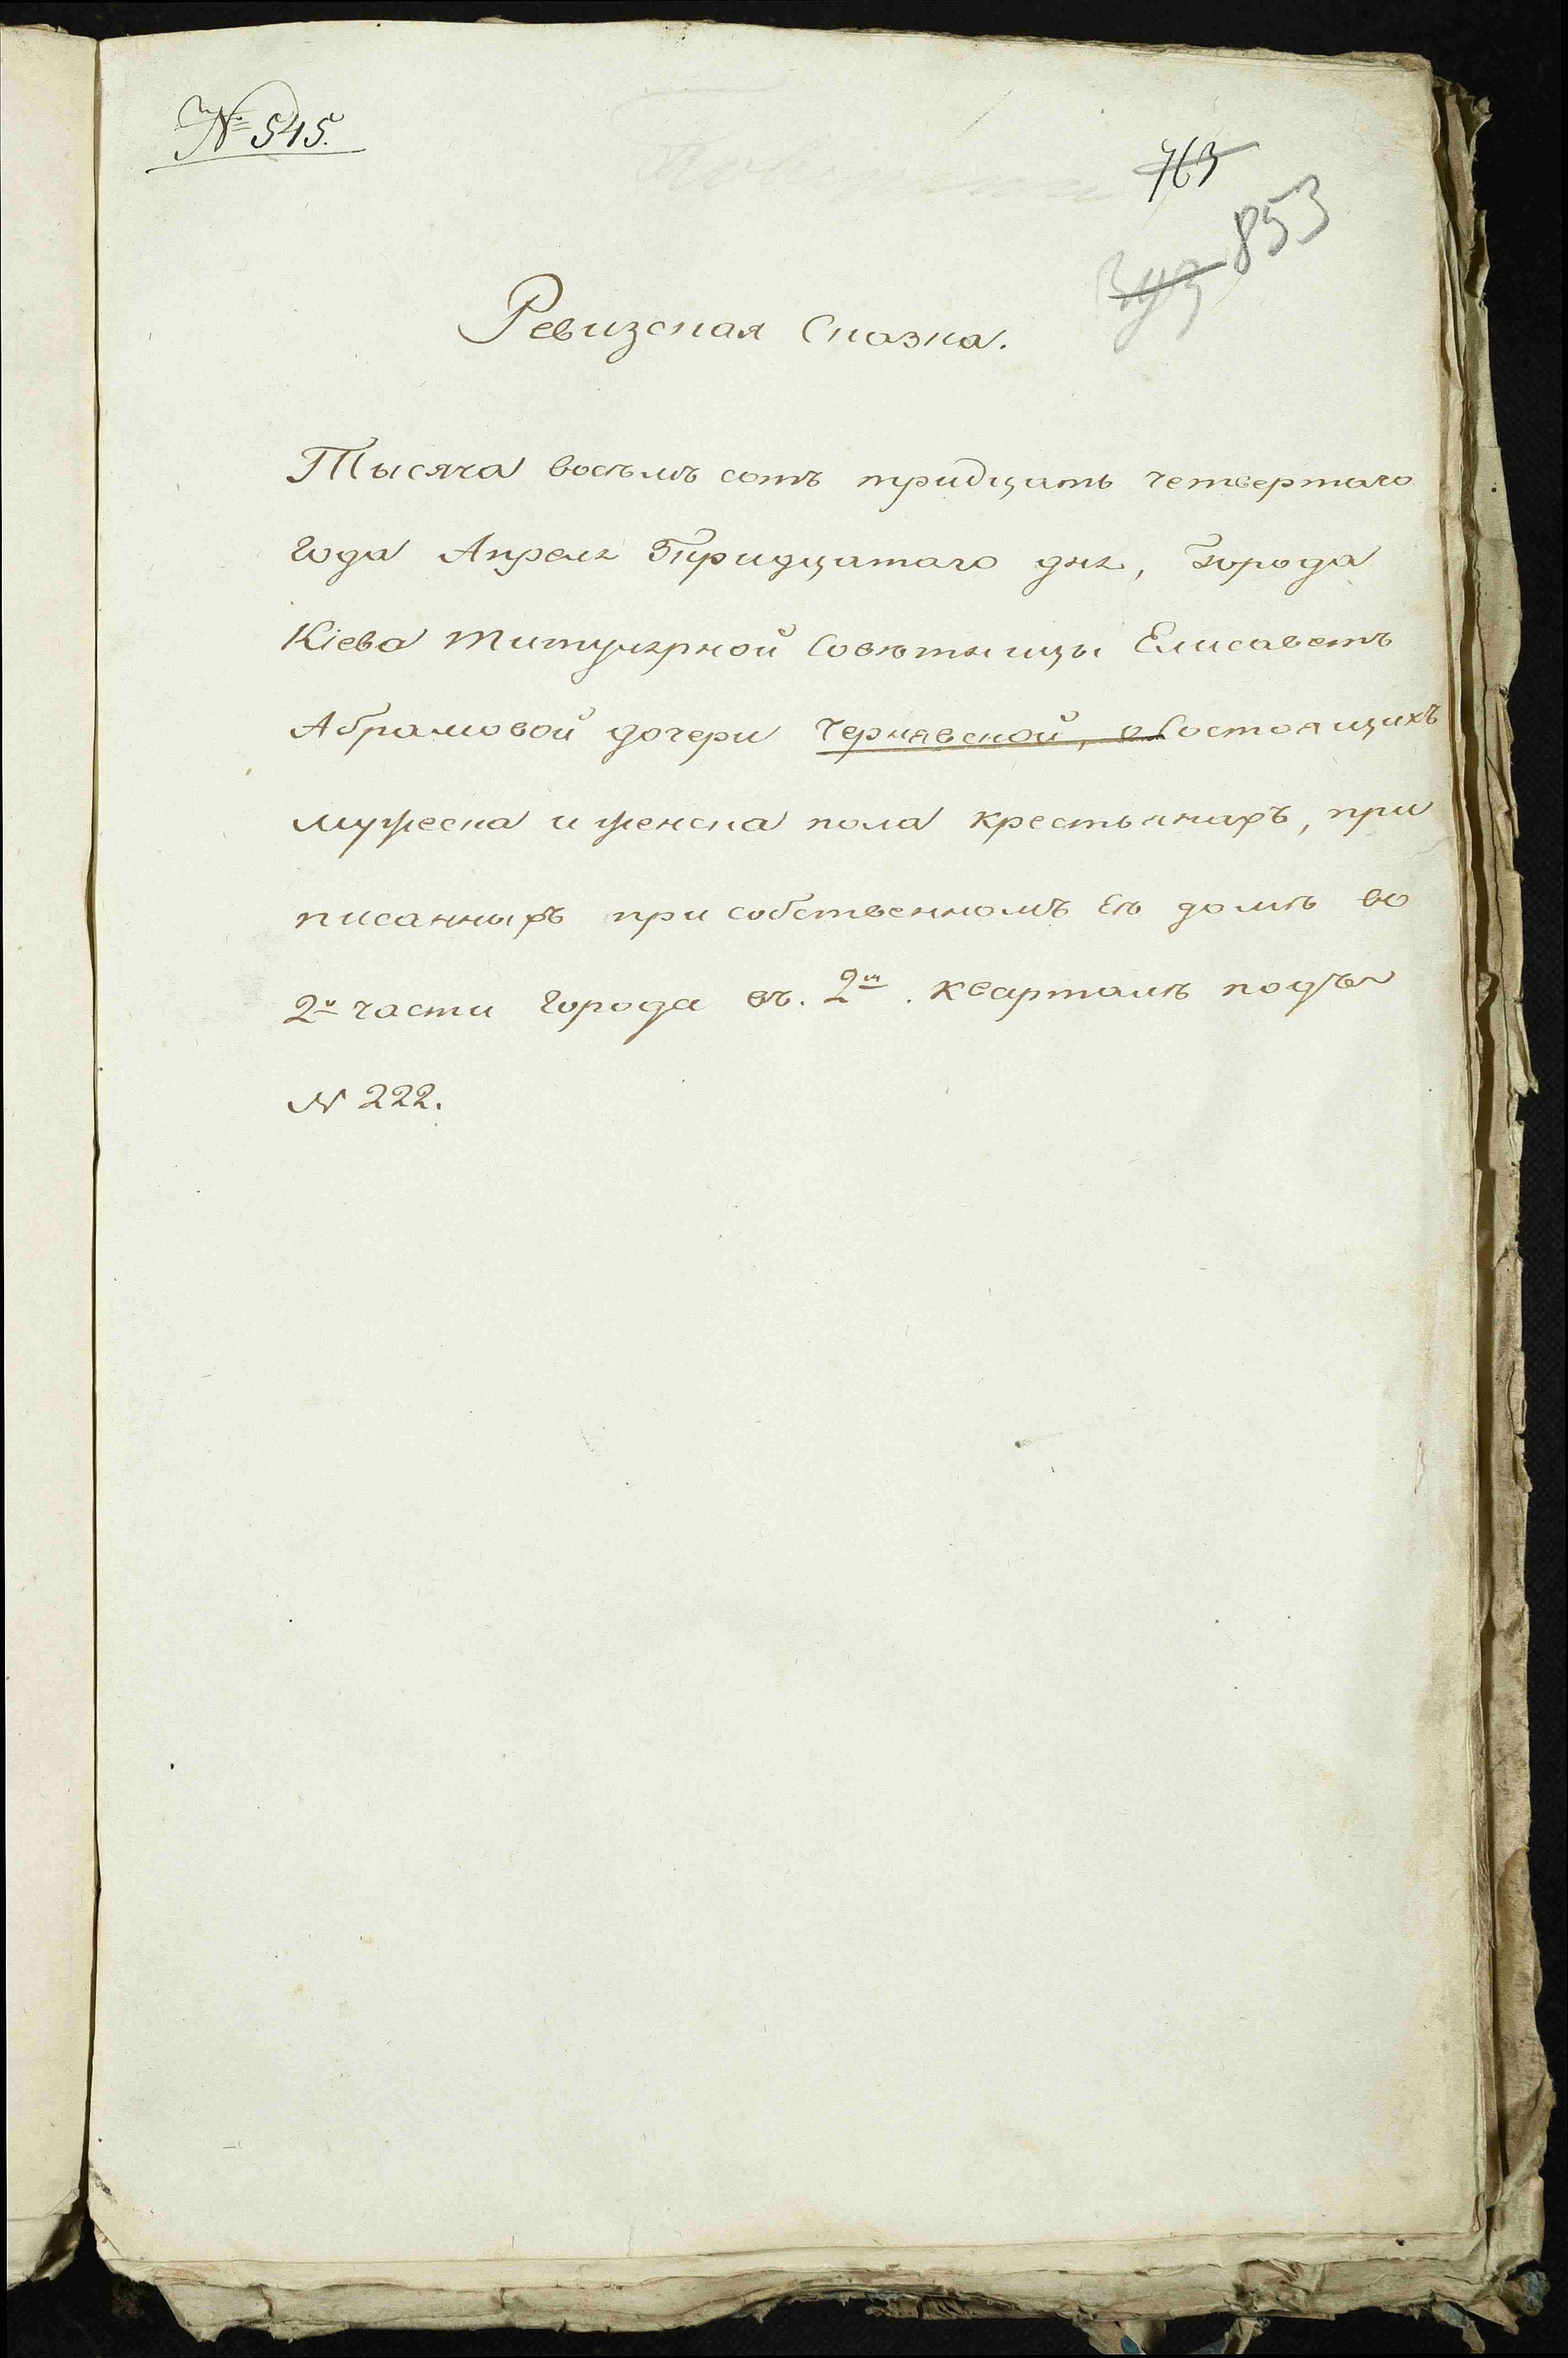 № 545.
763
853
Ревизская Сказка.
Тысяча восьмъ сотъ тридцать четвертаго
Года Апреля Тридцатаго дня, Города
Кіева Титулярной Совѣтницы Елисаветъ
Абрамовой дочери Чернявской, о Состоящихъ
мужеска и женска пола крестьянахъ, при
писанныхъ при собственномъ Еѣ домѣ во
2й части Города въ. 2м. кварталѣ подъ
№ 222.